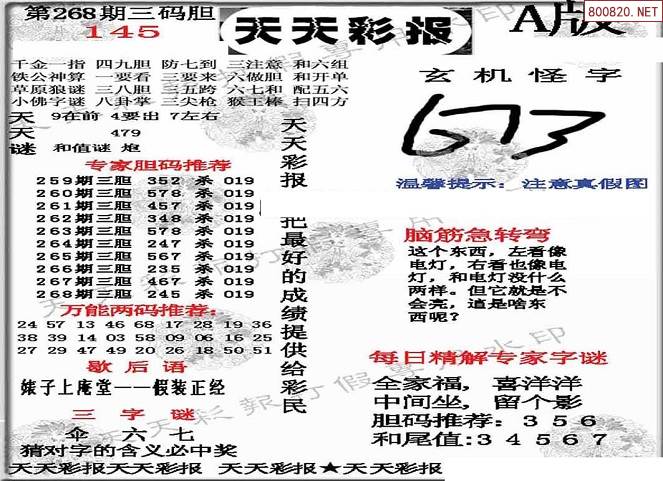 第268期三码胆
145
天天彩报
A版
800820.NET
千金一指 四九胆 防七到 三注意 和六组
铁公神算 一要看 三要来 六做胆 和开单
草原狼谜 三八胆 三五跨 六七和 配五六
小佛字谜 八卦掌 三尖枪 猴王棒 扫四方
天 9在前 4要出 7左右
天 479
谜 和值谜 炮
专家胆码推荐
259期三胆 352 杀 019
260期三胆 578 杀 019
261期三胆 457 杀 019
262期三胆 348 杀 019
263期三胆 578 杀 019
264期三胆 247 杀 019
265期三胆 567 杀 019
266期三胆 235 杀 019
267期三胆 467 杀 019
268期三胆 245 杀 019
万能两码推荐:
24 57 13 46 68 17 28 19 36
38 39 14 03 58 09 06 16 25
27 29 47 49 20 26 18 50 51
歇后语
婊子上庵堂——假装正经
三字谜
伞 六 七
猜对字的含义必中奖
天天彩报 把最好的成绩提供给彩民
玄机怪字
673
温馨提示: 注意真假图
脑筋急转弯
这个东西，左看像
电灯，右看也像电
灯，和电灯没什么
两样。但它就是不
会亮，這是啥东
西呢?
每日精解专家字谜
全家福，喜洋洋
中间坐，留个影
胆码推荐: 3 5 6
和尾值:3 4 5 6 7
天天彩报天天彩报 天天彩报★天天彩报